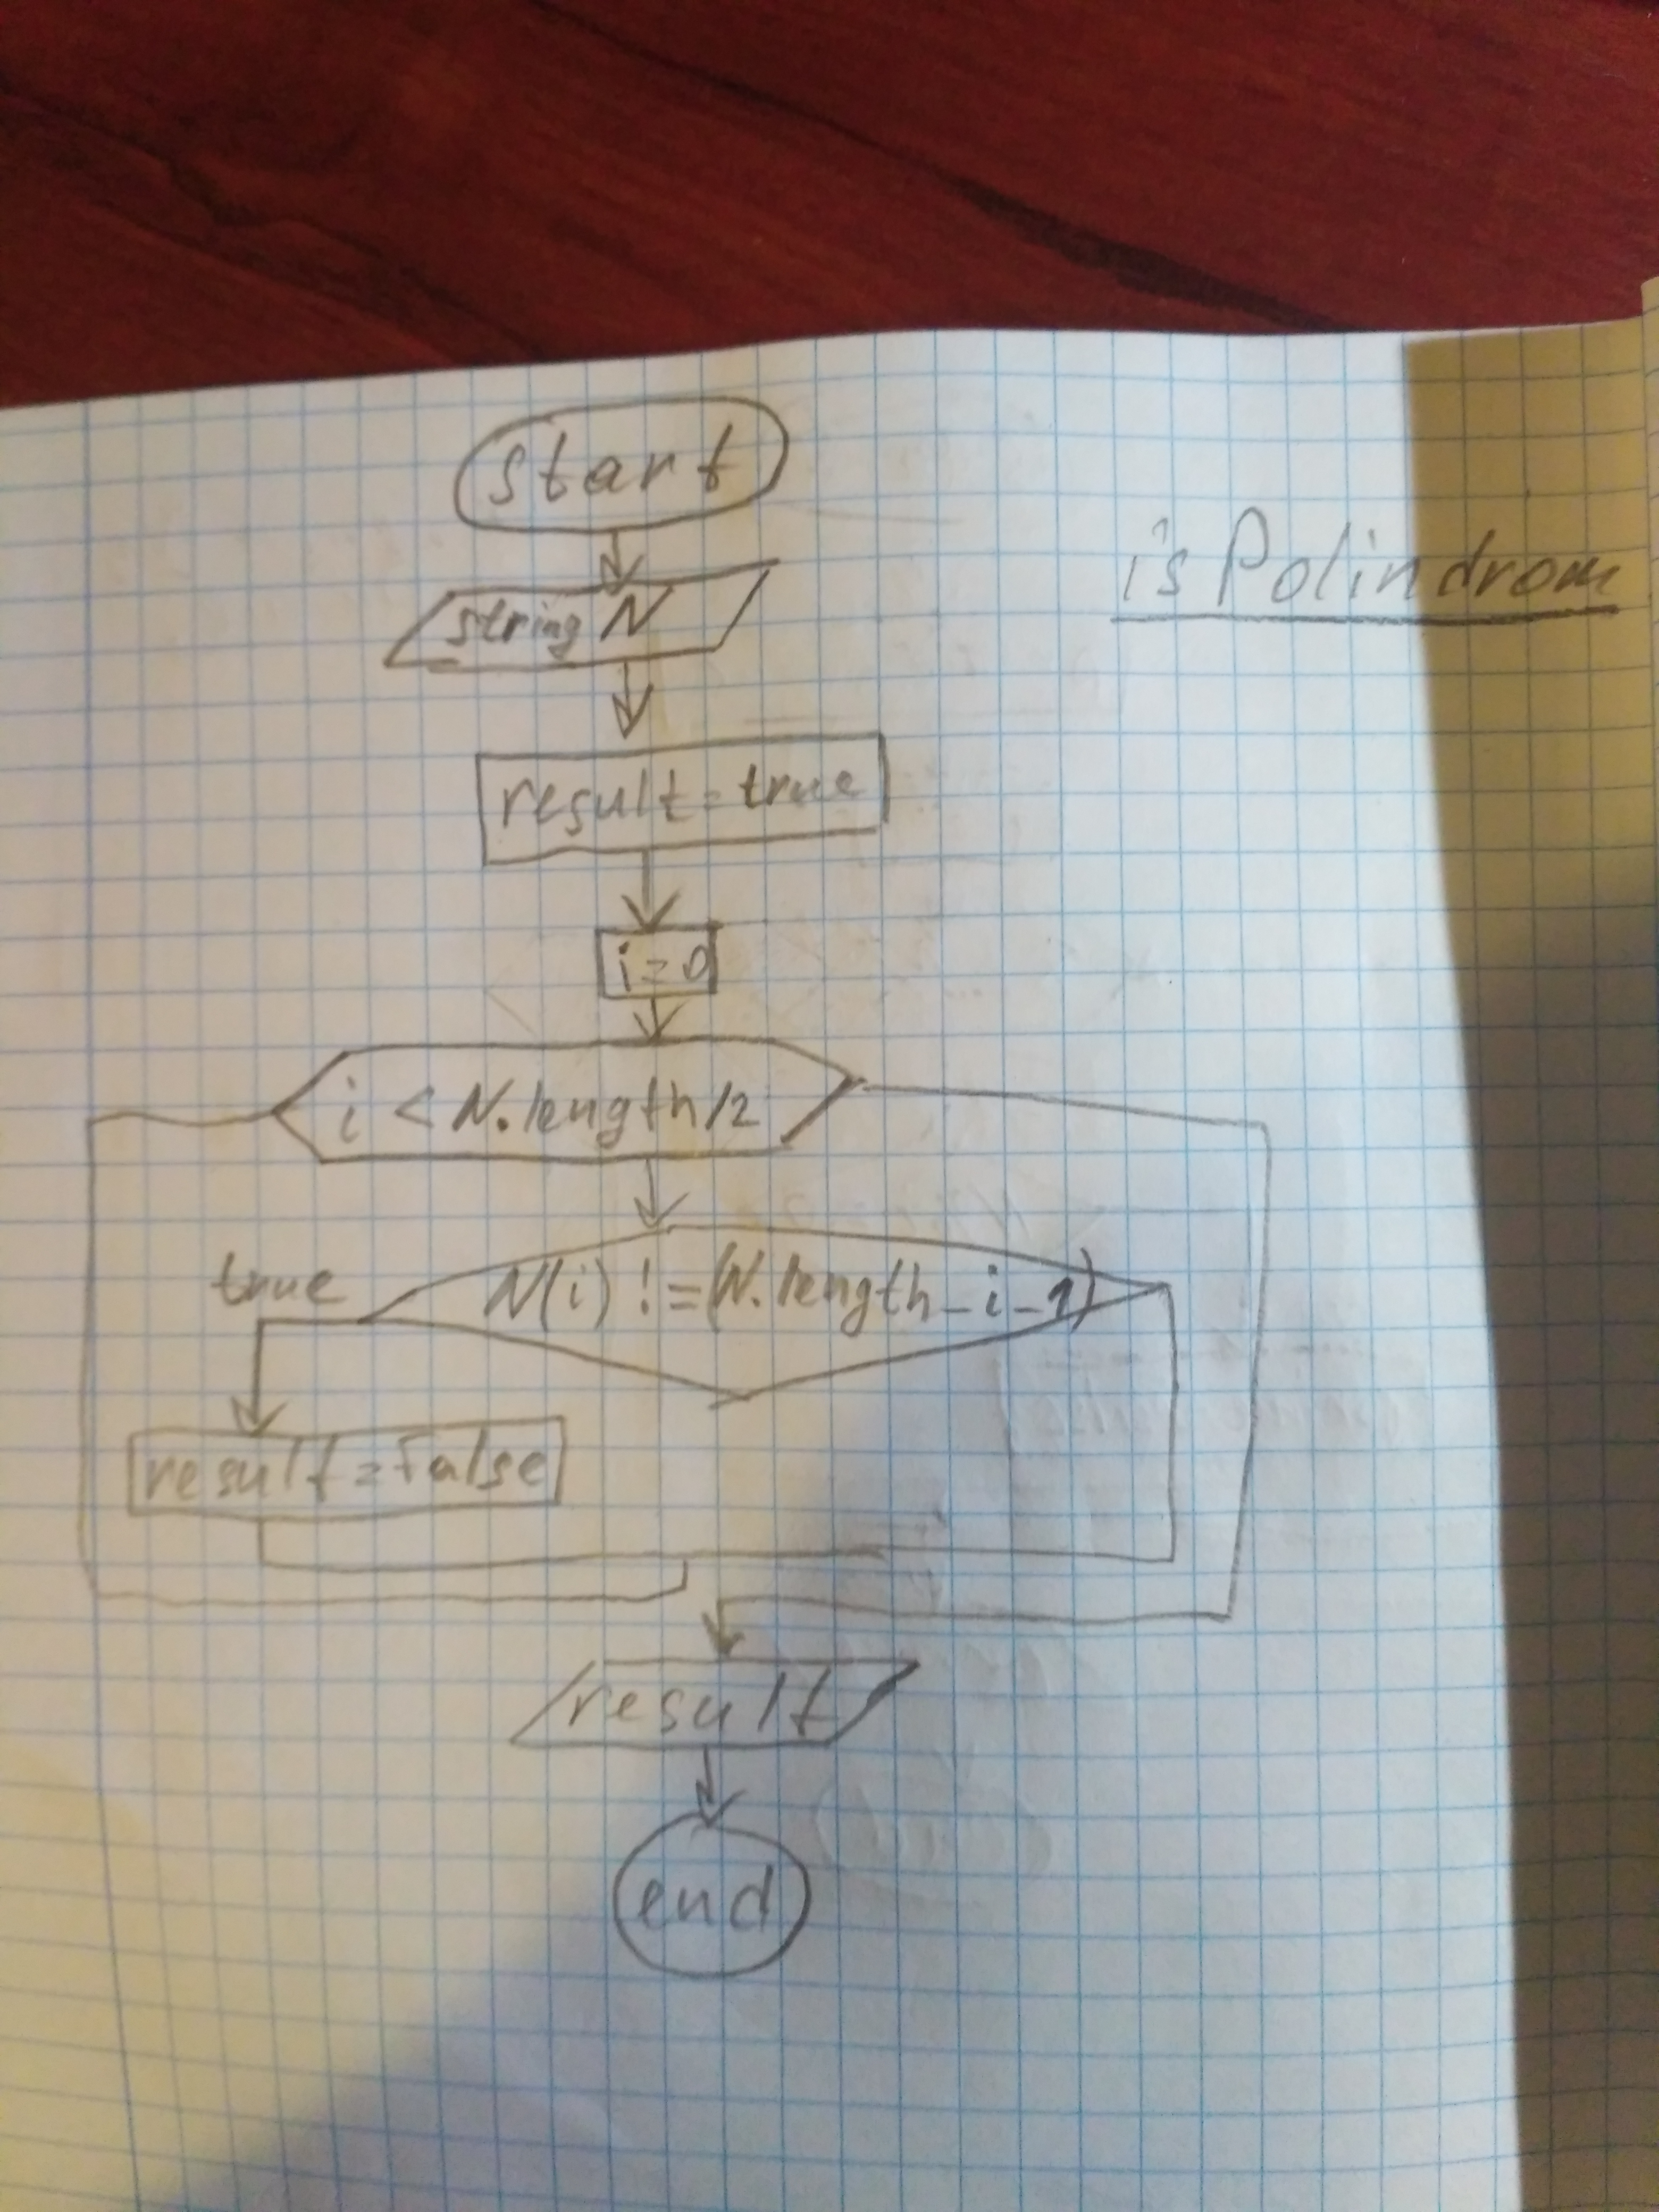 start
is Polindrom
string N
result=true
i=0
i < N.length/2
true
N(i) !=(N.length-i-1)
result=false
result
end